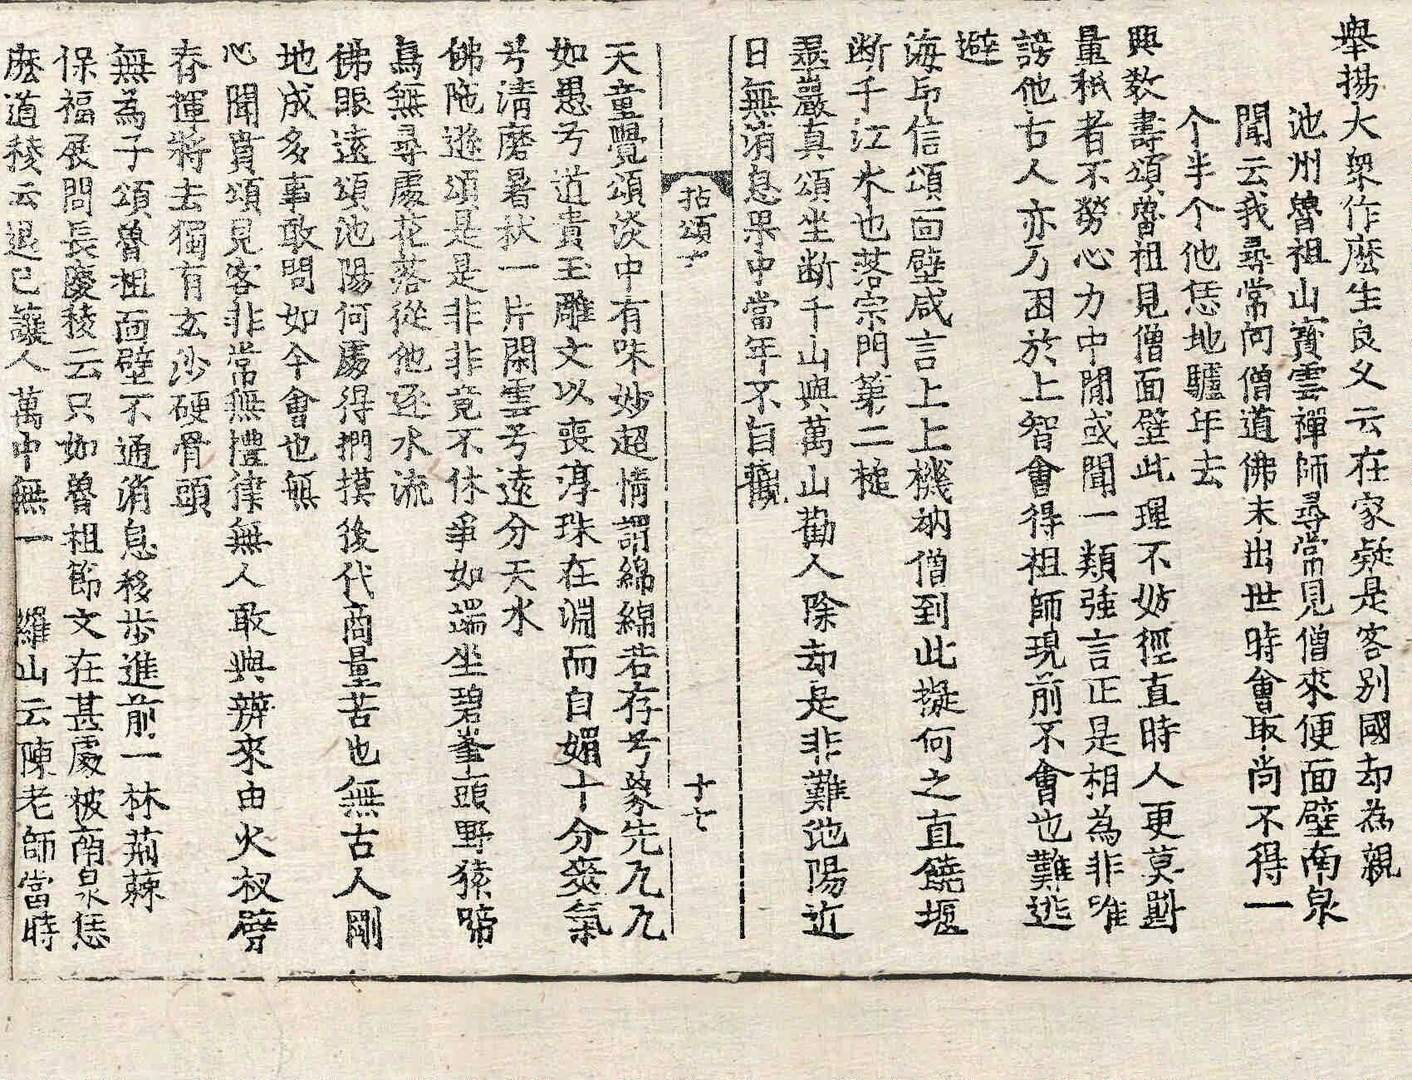 舉揚大衆作麽生良久云在家疑是客別國却為親
池州魯祖山寶雲禪師尋常見僧來便面壁南泉
聞云我尋常向僧道佛未出世時會取尚不得一
个半个他恁地驢年去
興敎壽頌魯祖見僧面壁此理不妨徑直時人更莫斟
量秖者不勞心力中閒或聞一類強言正是相為非唯
謗他古人亦乃困於上智會得祖師現前不會也難逃
避
海印信頌面壁咸言上上機衲僧到此擬何之直饒堰
断千江水也落宗門第二槌
雲巖真頌坐断千山與萬山勸人除却是非難池陽近
日無消息果中當年不自觀
拈頌十
十七
天童覺頌淡中有味妙超情謂綿綿若存兮象先兀兀
如愚兮道貴玉雕文以喪淳珠在淵而自媚十分爽氣
兮清磨暑秋一片閑雲兮遠分天水
佛陁遜頌是是非非竟不休爭如端坐碧峯頭野猿啼
鳥無尋處花落從他逐水流
佛眼遠頌池陽何處得捫摸後代商量苦也無古人剛
地成多事敢問如今會也無
心聞賁頌見客非常無禮律無人敢與辨來由火杈劈
春運將去獨有玄沙硬骨頭
無為子頌魯祖面壁不通消息移步進前一林荊棘
保福展問長慶稜云只如魯祖節文在甚處被南泉恁
麽道稜云退已讓人萬中無一 羅山云陳老師當時